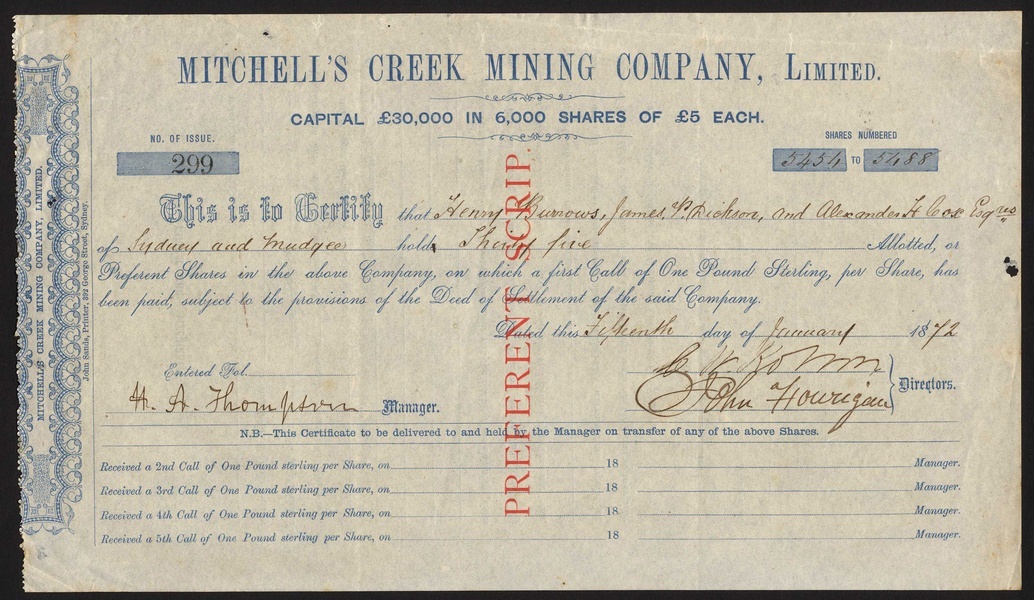 MITCHELL'S CREEK MINING COMPANY, LIMITED.
CAPITAL £30,000 IN 6,000 SHARES OF £5 EACH.
NO. OF ISSUE.
299
SHARES NUMBERED
5454 TO 5488
This is to Certify that Henry Burrows, James P. Dickson, and Alexander H Cox Esqres
of Sydney and Mudgee hold Thirty five Allotted, or
Preferent Shares in the above Company, on which a first Call of One Pound Sterling, per Share, has
been paid, subject to the provisions of the Deed of Settlement of the said Company.
Dated this Fifteenth day of January 1872
PREFERENT SCRIP.
Entered Fol.
H. A. Thompson Manager.
John Hourigan
Directors.
N.B.—This Certificate to be delivered to and held by the Manager on transfer of any of the above Shares.
Received a 2nd Call of One Pound sterling per Share, on 18 Manager.
Received a 3rd Call of One Pound sterling per Share, on 18 Manager.
Received a 4th Call of One Pound sterling per Share, on 18 Manager.
Received a 5th Call of One Pound sterling per Share, on 18 Manager.
MITCHELL'S CREEK MINING COMPANY, LIMITED.
John Sands, Printer, 392 George Street, Sydney.